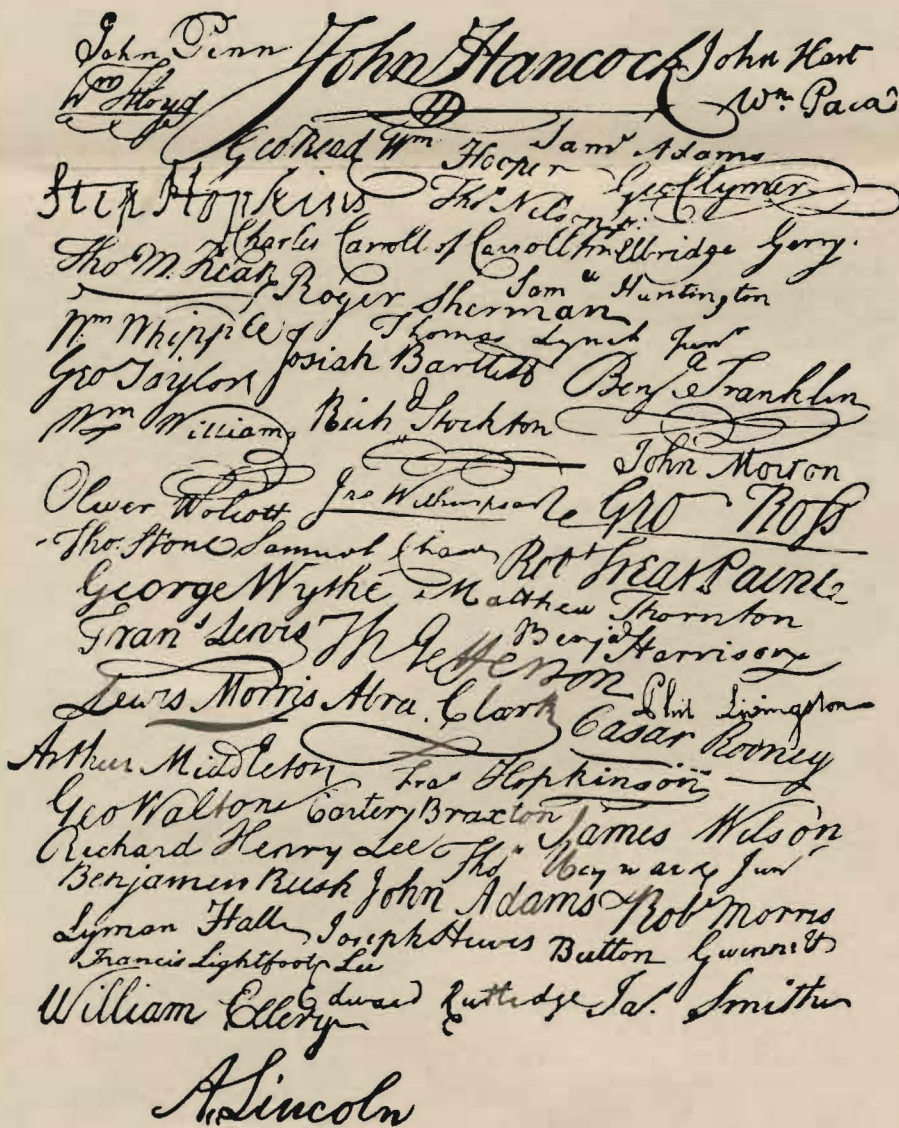 John Penn John Hancock John Hart
Wm Floyd Wm Paca
Geo Read Wm Hooper Saml Adams
Step Hopkins Thos Nelson jr. Geo Clymer
Charles Carroll of Carrollton Elbridge Gerry.
Tho M. Kean Roger Sherman Saml Huntington
Wm Whipple Thomas Lynch Junr
Geo Taylor Josiah Bartlett Benja Franklin
Wm Williams Richd Stockton
John Morton
Oliver Wolcott Jno Witherspoon Geo Ross
Tho. Stone Samuel Chase Robt Treat Paine
George Wythe Matthew Thornton
Frans Lewis Th Jefferson Benja Harrison
Lewis Morris Abra. Clark Phil Livingston
Casar Rodney
Arthur Middleton Fras Hopkinson
Geo Walton Carter Braxton James Wilson
Richard Henry Lee Thos Heyward Junr
Benjamin Rush John Adams Robt Morris
Lyman Hall Joseph Hewes Button Gwinnett
Francis Lightfoot Lee
William Ellery Edward Rutledge Jas. Smith
A. Lincoln